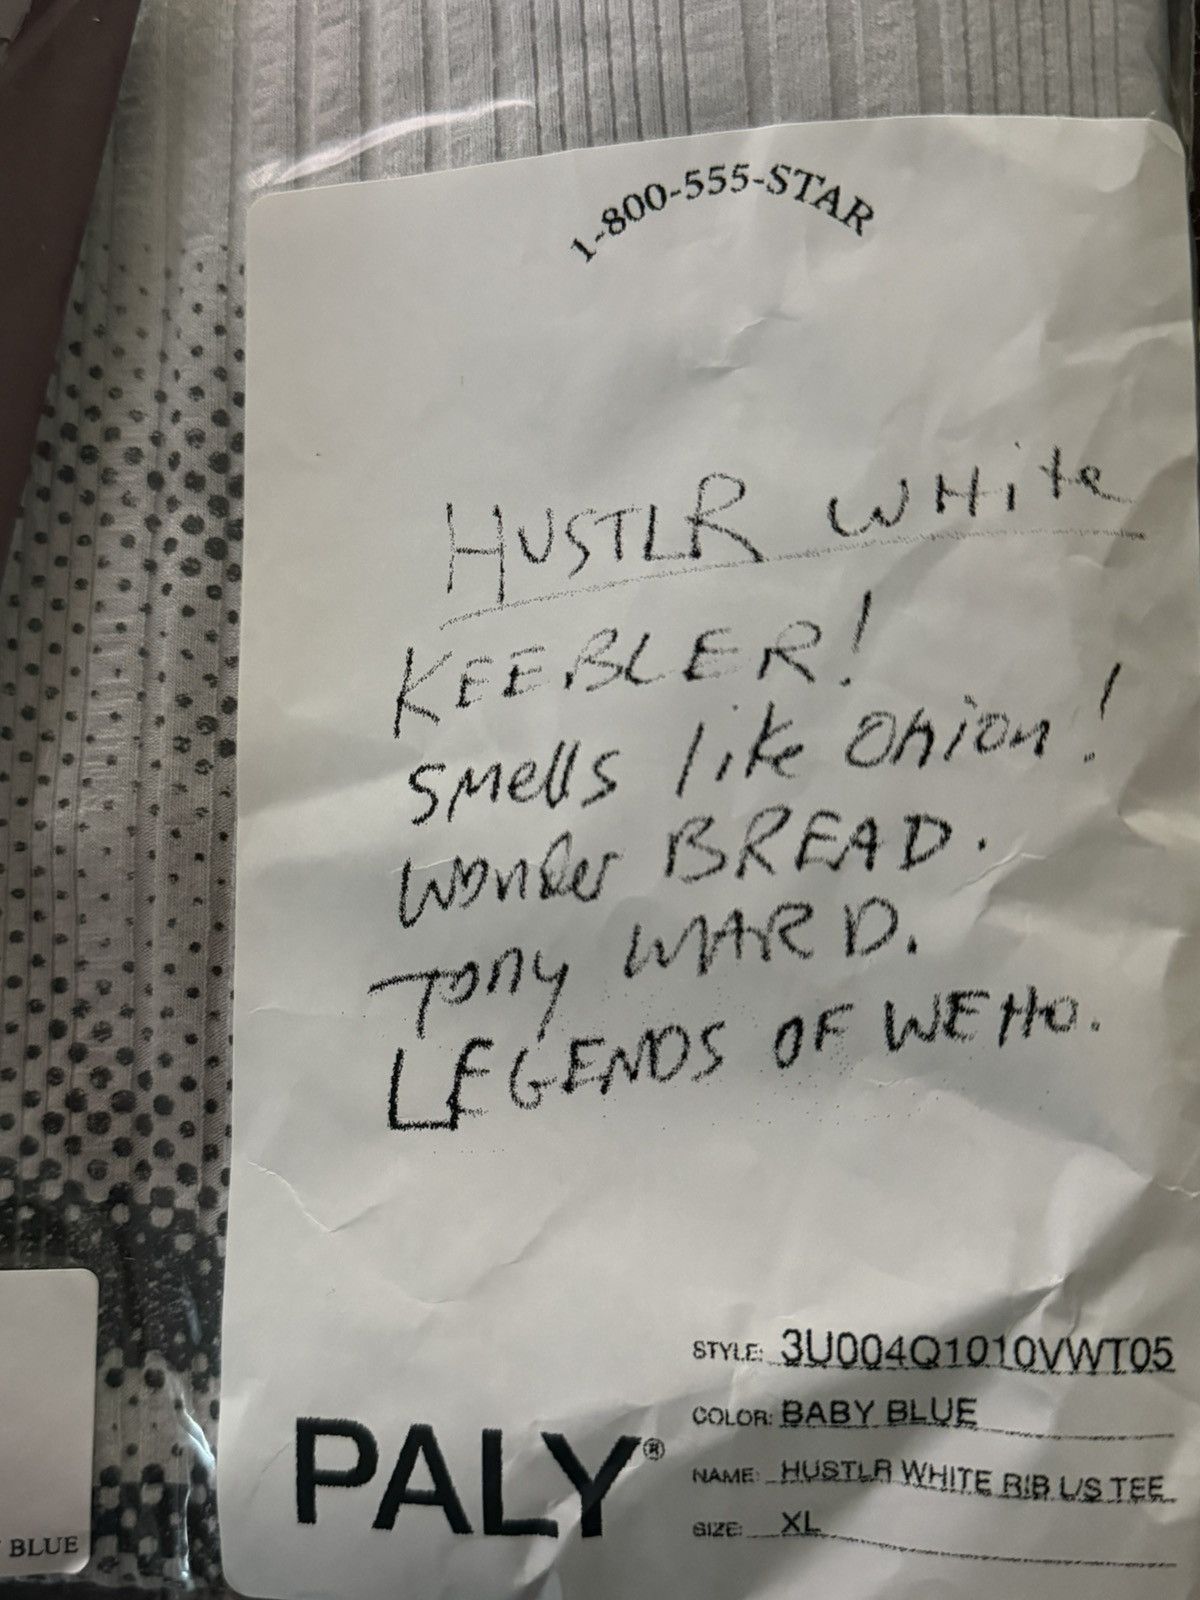 1-800-555-STAR
HUSTLR WHite
KEEBLER!
smells like Onion!
wonder BREAD.
Tony WARD.
LEGENDS OF WEHO.
PALY®
STYLE: 3U004Q1010VWT05
COLOR: BABY BLUE
NAME: HUSTLR WHITE RIB L/S TEE
SIZE: XL
BLUE